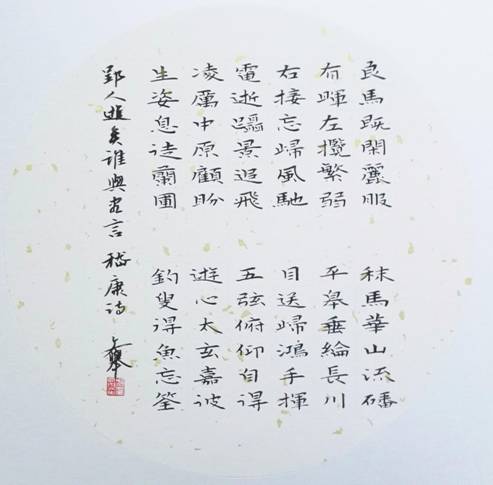 良馬既閑麗服
有暉左攬繁弱
右接忘歸風馳
電逝躡景追飛
凌厲中原顧盼
生姿息徒蘭圃
秣馬華山流磻
平皋垂綸長川
目送歸鴻手揮
五弦俯仰自得
遊心太玄嘉彼
釣叟得魚忘筌
郢人逝矣誰與盡言 嵇康詩